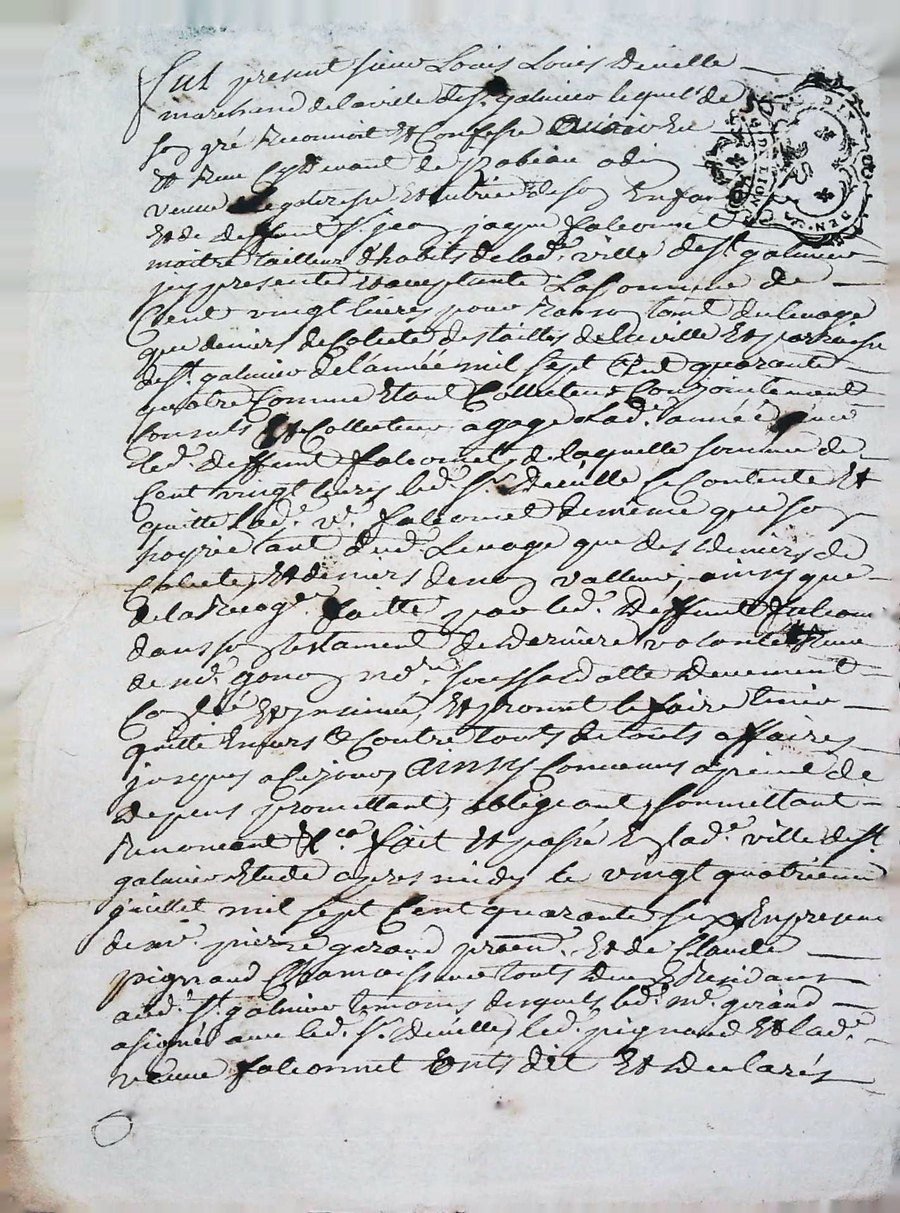 Fut present sieur Louis Louis Deville
marchand de la ville de st galmier lequel de
son gré Reconnoit Et Confesse avoir Eu
Et Reçu cy devant de
veuve Et tutrice de ses Enfans
Et de deffunt sr jean jaque falconnet
maitre tailleur d'habits de lad. ville de st galmier
icy presente Et acceptante La Somme de
Cent vingt livres pour Raison tant du levage
que deniers de Colecte des tailles de la ville Et parroisse
de st galmier de l'année mil sept Cent quarante
quatre Comme Etant Collecteur Conjointement
Consuls Et Collecteur a gage lad. année avec
led. deffunt falconnet, de laquelle somme de
Cent vingt livres led. sr. Deville se Contente Et
quitte lad. ve. falconnet de meme que so
hoyrie tant dud. Levage que des deniers de
Colecte, Et deniers de no valleur, ainsy que
de la Recog faitte par led. Deffunt falconn
dans so testament de derniere volonté Reçu
de me. gono nore. soussd datte duement
Co lé Et insinué, Et promet le faire tenir
quitte Envers Et Contre touts de touts affaires
jusques a ce jour Ainsy Convenus a peine de
depens promettant, obligeant, soumettant
Renonçant &ca. fait Et passé En lad. ville de st
galmier Etude apres midy le vingt quatrieme
juillet mil sept Cent quarante six En presence
de me. pierre girard praen. Et de Claude
pignard Chamoisseur touts deux Residants
aud. st. galmier temoins desquels led. me. girard
a signé avec led. sr. deville, led. pignard Et lad.
veuve falconnet Onts dit Et declarés
GEN. DE LION